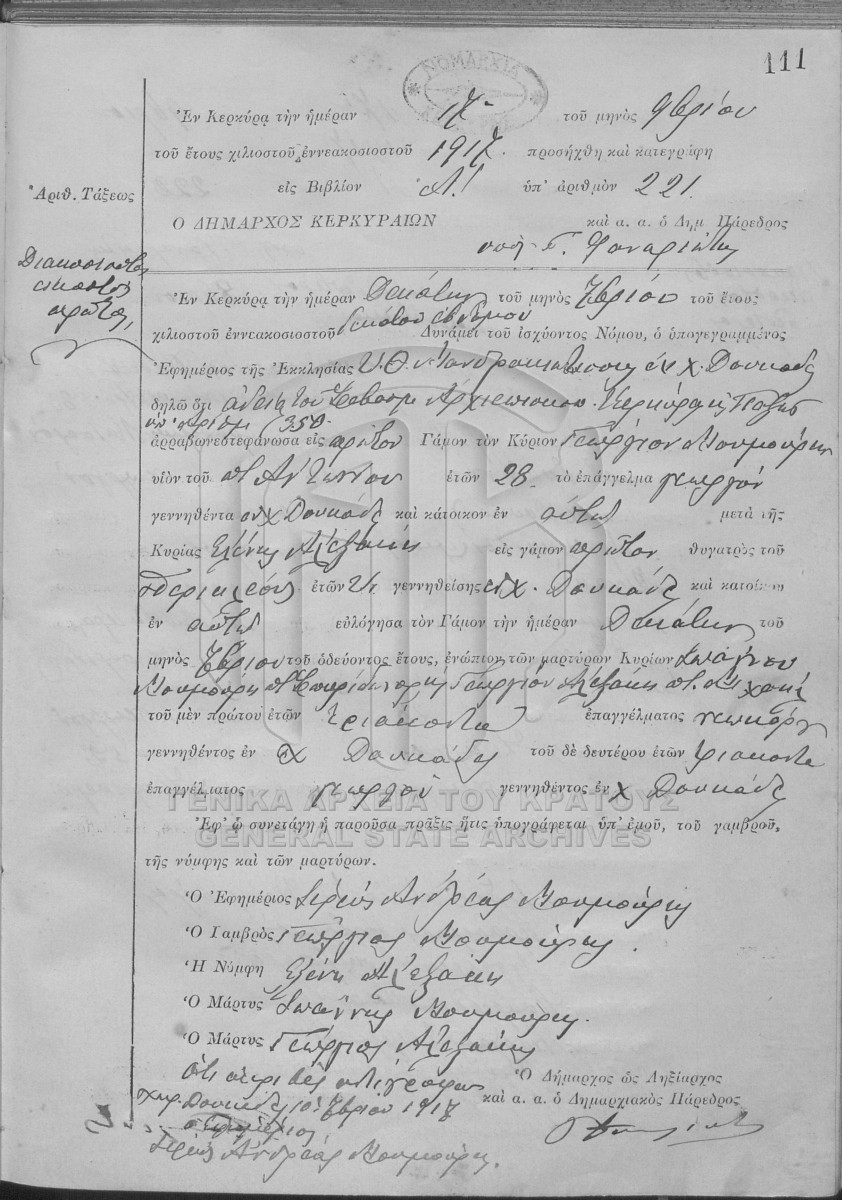 111
ΝΟΜΑΡΧΙΑ
Ἐν Κερκύρᾳ τὴν ἡμέραν 17 τοῦ μηνὸς 9βρίου
τοῦ ἔτους χιλιοστοῦ ἐννεακοσιοστοῦ 1917. προσήχθη καὶ κατεγράφη
εἰς Βιβλίον Α! ὑπ' ἀριθμὸν 221.
Ἀριθ. Τάξεως
Ο ΔΗΜΑΡΧΟΣ ΚΕΡΚΥΡΑΙΩΝ καὶ α. α. ὁ Δημ Πάρεδρος
Διακοσιοστὸς
εἰκοστὸς
πρῶτος
Ἐν Κερκύρᾳ τὴν ἡμέραν Δεκάτην τοῦ μηνὸς 7βρίου τοῦ ἔτους
χιλιοστοῦ ἐννεακοσιοστοῦ δεκάτου ἑβδόμου Δυνάμει τοῦ ἰσχύοντος Νόμου, ὁ ὑπογεγραμμένος
Ἐφημέριος τῆς Ἐκκλησίας Υ. Θ. χ. Δουκάδες
δηλῶ ὅτι ἀδείᾳ τοῦ Σεβασμ Ἀρχιεπισκόπου Κερκύρας
ὑπ' ἀριθμ 350
ἀρραβωνεστεφάνωσα εἰς πρῶτον Γάμον τὸν Κύριον Γεώργιον Κουμούρην
υἱὸν τοῦ π. Ἀντωνίου ἐτῶν 28 τὸ ἐπάγγελμα γεωργὸν
γεννηθέντα ἐν χ Δουκάδες καὶ κάτοικον ἐν αὐτῷ μετὰ τῆς
Κυρίας Ἑλένης Ἀλεξάκη εἰς γάμον πρῶτον θυγατρὸς τοῦ
Περικλέους ἐτῶν γεννηθείσης ἐν χ. Δουκάδες καὶ κατοίκου
ἐν αὐτῷ εὐλόγησα τὸν Γάμον τὴν ἡμέραν Δεκάτην τοῦ
μηνὸς 7βρίου τοῦ ὁδεύοντος ἔτους, ἐνώπιον τῶν μαρτύρων Κυρίων Ἰωάννου
Κουμούρη π. Σπυρίδωνος καὶ Γεωργίου Ἀλεξάκη π. Μιχαήλ
τοῦ μὲν πρώτου ἐτῶν τριάκοντα ἐπαγγέλματος γεωργοῦ
γεννηθέντος ἐν χ Δουκάδες τοῦ δὲ δευτέρου ἐτῶν τριάκοντα
ἐπαγγέλματος γεωργοῦ γεννηθέντος ἐν χ Δουκάδες
ΓΕΝΙΚΑ ΑΡΧΕΙΑ ΤΟΥ ΚΡΑΤΟΥΣ
Ἐφ' ᾧ συνετάγη ἡ παροῦσα πρᾶξις ἥτις ὑπογράφεται ὑπ' ἐμοῦ, τοῦ γαμβροῦ,
GENERAL STATE ARCHIVES
τῆς νύμφης καὶ τῶν μαρτύρων.
Ὁ Ἐφημέριος Ἱερεὺς Ἀνδρέας Κουμούρης
Ὁ Γαμβρὸς Γεώργιος Κουμούρης.
Ἡ Νύμφη Ἑλένη Ἀλεξάκη
Ὁ Μάρτυς Ἰωάννης Κουμούρης.
Ὁ Μάρτυς Γεώργιος Ἀλεξάκης
Ὅτι ἀκριβὲς ἀντίγραφον
Ὁ Δήμαρχος ὡς Ληξίαρχος
Δουκάδες 10 7βρίου 1917
καὶ α. α. ὁ Δημαρχιακὸς Πάρεδρος
ὁ ἐφημέριος
Ἱερεὺς Ἀνδρέας Κουμούρης.